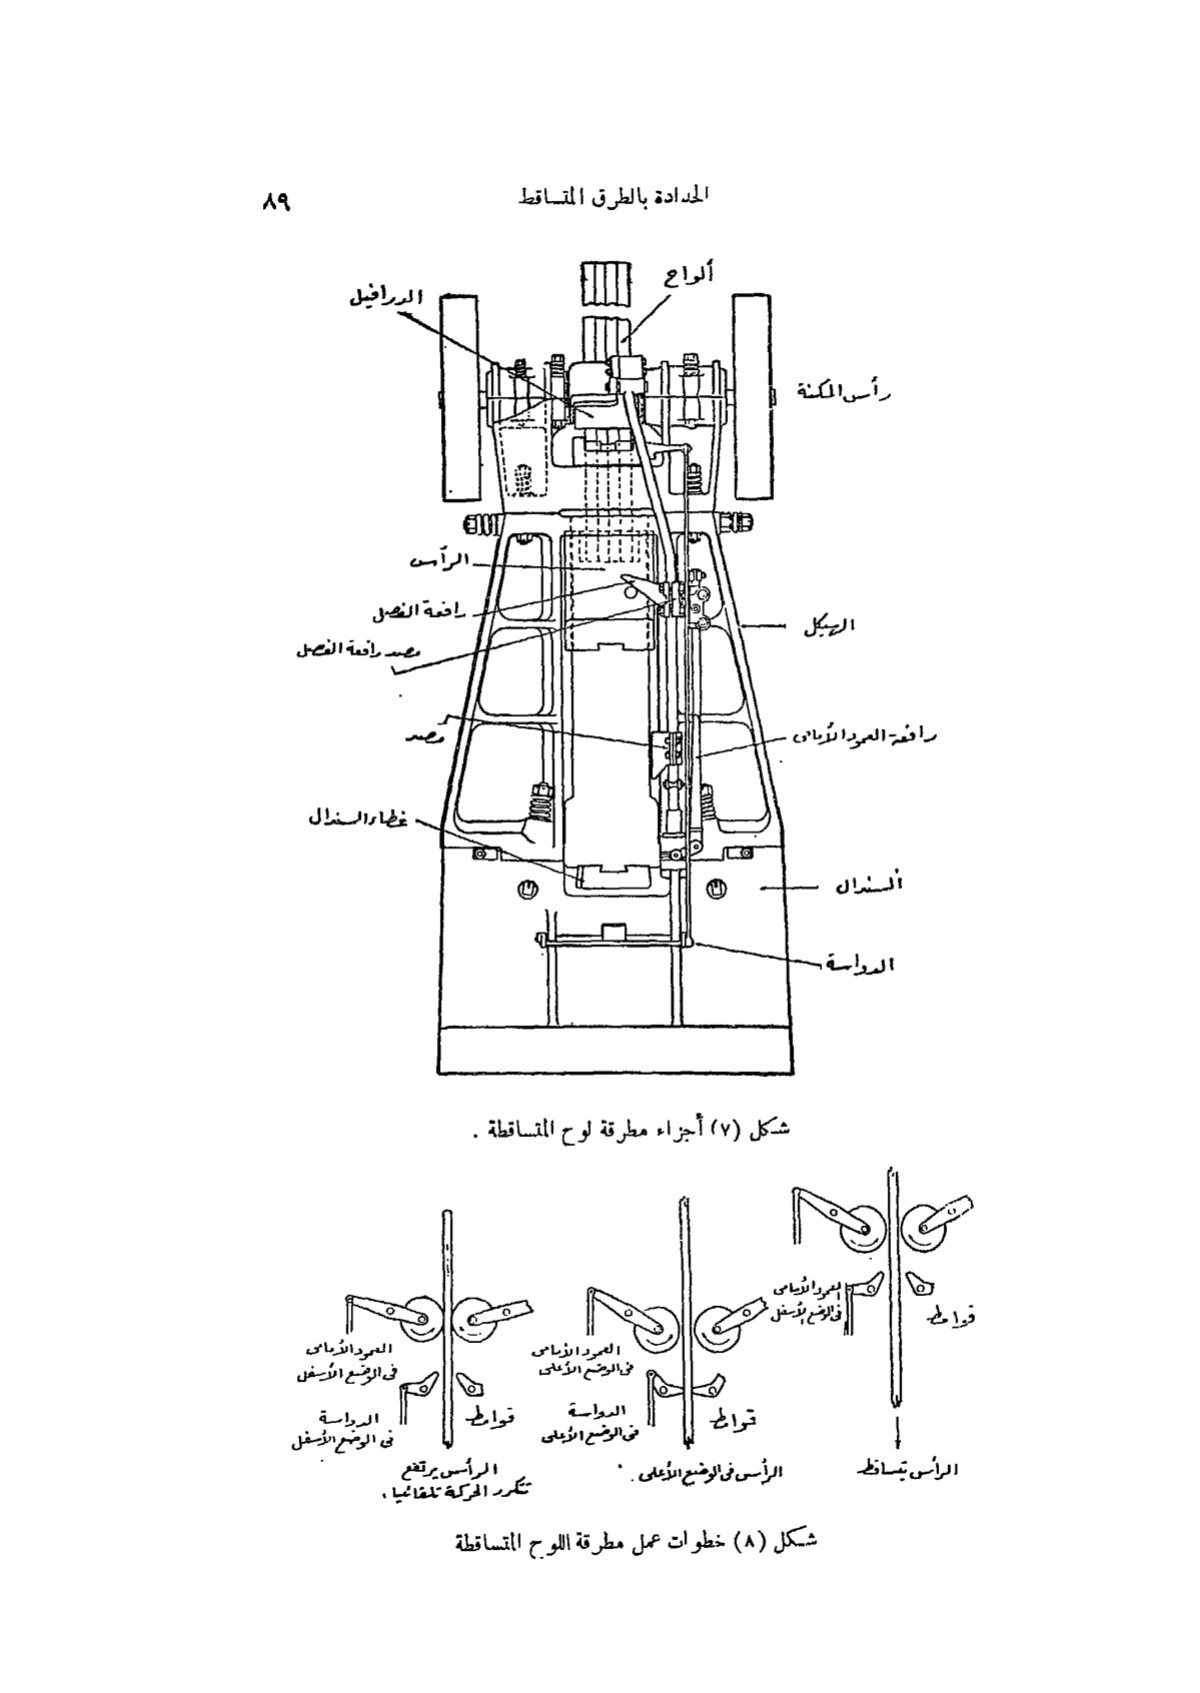 الحدادة بالطرق المتساقط
٨٩
ألواح
الدرافيل
رأس المكنة
الرأس
رافعة الفصل
الهيكل
مصد رافعة الفصل
رافعة العمود الأمامى
مصد
غطاء السندال
السندال
الدواسة
شكل (٧) أجزاء مطرقة لوح المتساقطة .
العمود الأمامى
فى الوضع الأسفل
قوامط
الرأس تيساقط
العمود الأمامى
فى الوضع الأعلى
الدواسة
فى الوضع الأعلى
قوامط
الرأس فى الوضع الأعلى .
العمود الأمامى
فى الوضع الأسفل
الدواسة
فى الوضع الأسفل
قوامط
الرأس يرتفع
تتكرر الحركة تلقائيا ،
شكل (٨) خطوات عمل مطرقة اللوح المتساقطة